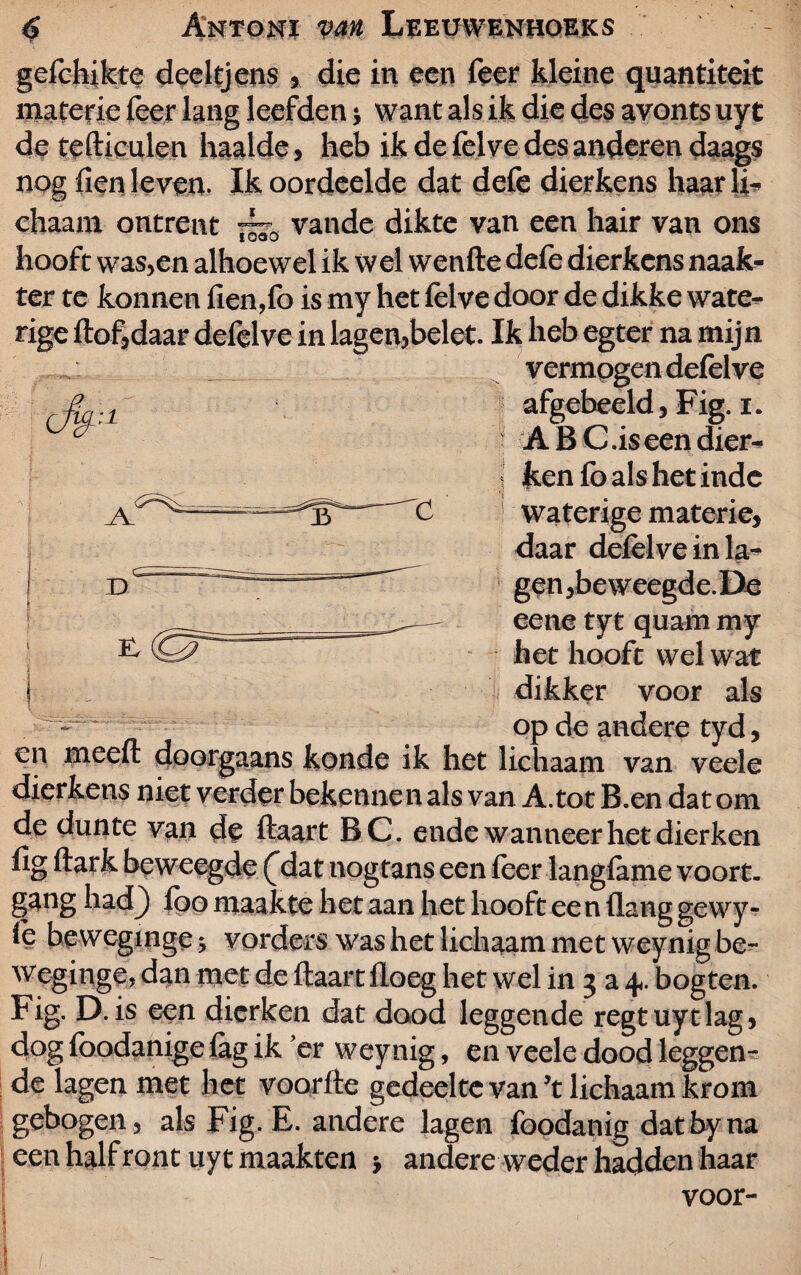 6 ANTONI van LEEUWENHOEKS
geſchikte deeltjens, die in een ſeer kleine quantiteit
materie ſeer lang leefden; want als ik die des avonts uyt
de teſticulen haalde, heb ik de ſelve des anderen daags
nog ſien leven. Ik oordeelde dat deſe dierkens haar li-
chaam ontrent 1/1000 vande dikte van een hair van ons
hooft was, en alhoewel ik wel wenſte deſe dierkens naak-
ter te konnen ſien, ſo is my het ſelve door de dikke wate-
rige ſtof, daar deſelve in lagen, belet. Ik heb egter na mijn
vermogen deſelve
afgebeeld, Fig. 1.
A B C. is een dier-
ken ſo als het inde
waterige materie,
daar deſelve in la-
gen, beweegde. De
eene tyt quam my
het hooft wel wat
dikker voor als
op de andere tyd,
Fig: 1
A B C
D
E
en meeſt doorgaans konde ik het lichaam van veele
dierkens niet verder bekennen als van A. tot B. en dat om
de dunte van de ſtaart B C. ende wanneer het dierken
ſig ſtark beweegde (dat nogtans een ſeer langſame voort-
gang had) ſoo maakte het aan het hooft een ſlang gewy-
ſe beweginge; vorders was het lichaam met weynig be-
weginge, dan met de ſtaart ſloeg het wel in 3 a 4. bogten.
Fig. D. is een dierken dat dood leggende regt uyt lag,
dog ſoodanige ſag ik 'er weynig, en veele dood leggen-
de lagen met het voorſte gedeelte van 't lichaam krom
gebogen, als Fig. E. andere lagen ſoodanig dat by na
een half ront uyt maakten; andere weder hadden haar
voor-